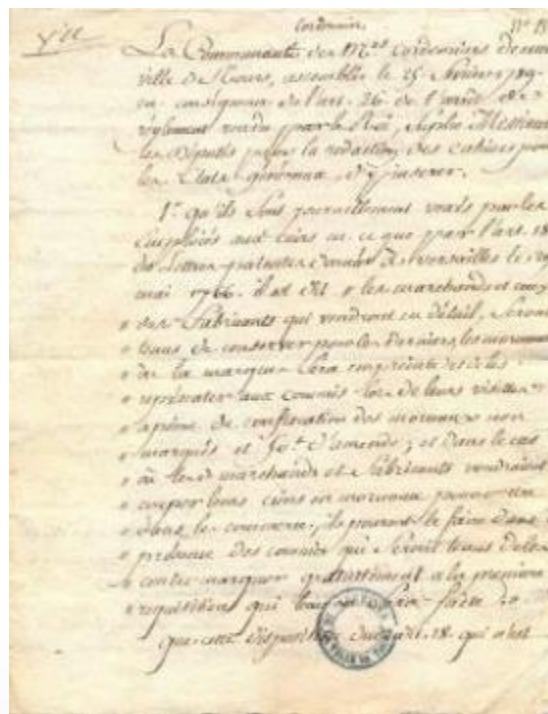 Cordonniers
La Communauté des M.ds Cordonniers de cette
ville de Tours, assemblée le 25 février 789
en conséquence de l'art. 26 de l'
règlement rendu par le Roi, supplie Messieurs
les Députés pour la rédaction des cahiers pour
les Etats généraux d'y insérer.
1.° qu'ils sont journellement vexés par les
Employés aux cuirs en ce que par l'art. 18
des Lettres-patentes données à Versailles le 29
mai 1766. il est dit les marchands et
des fabricants qui vendront en détail, seront
tenus de conserver pour les derniers les morceaux
où la marque sera empreinte et de les
représenter aux commis lors de leurs visites
à peine de confiscation des morceaux non
marqués et d'amende; et dans le cas
où les d. marchands et fabricants voudraient
couper leurs cuirs en morceaux pour
dans le commerce, ils pourront le faire dans
présence des commis qui seront tenus de les
contre-marquer gratuitement à la première
réquisition qui leur en sera faite
que cette disposition dudit art. 18. qui n'est